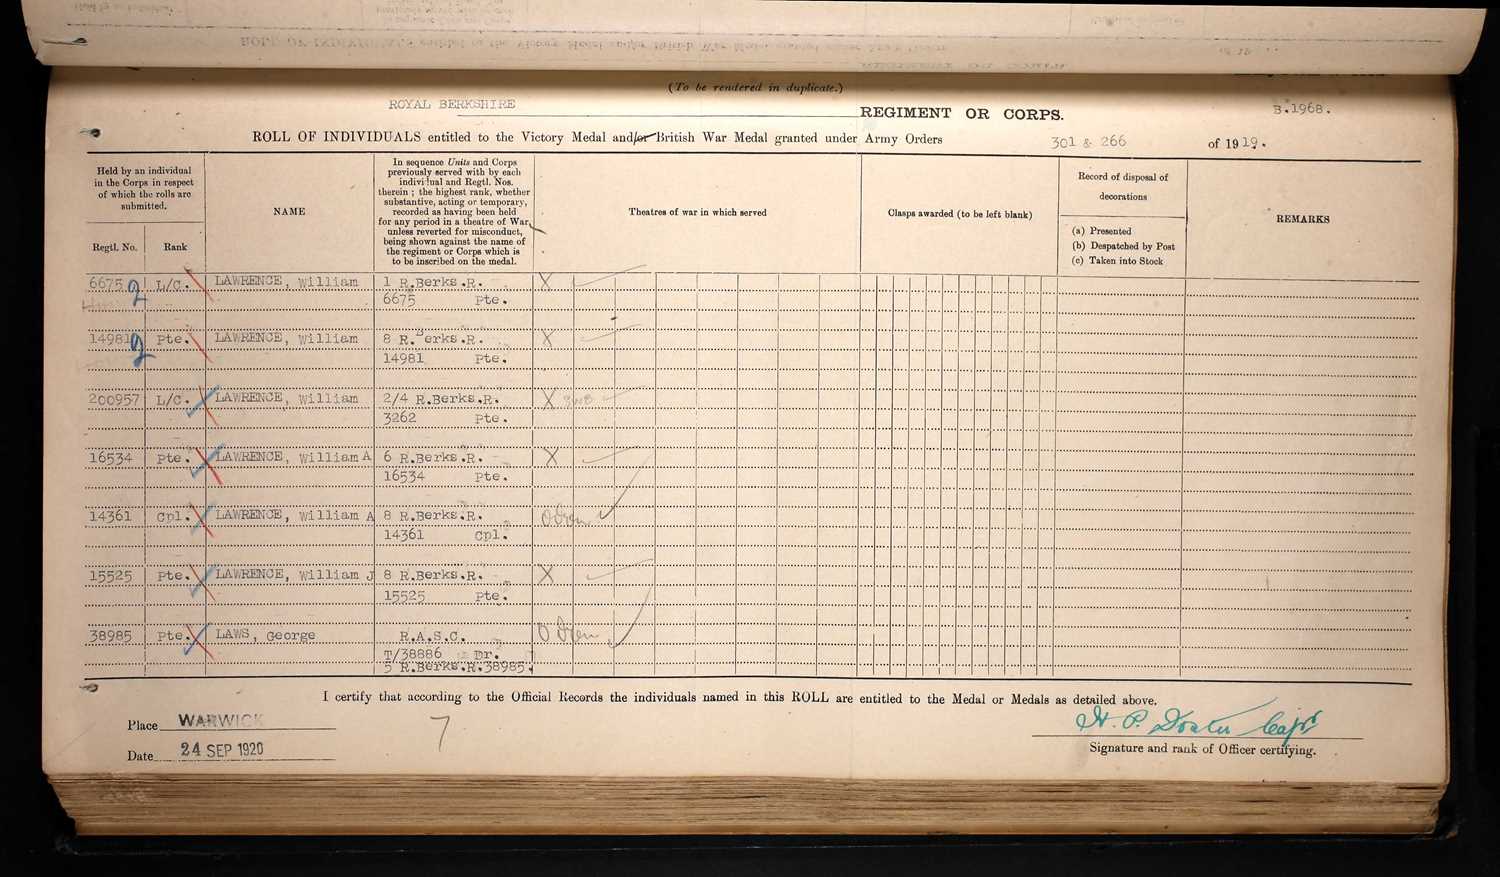 ROLL OF INDIVIDUALS entitled to the Victory Medal and/or British War Medal granted under Army Orders
(To be rendered in duplicate.)
ROYAL BERKSHIRE REGIMENT OR CORPS. B.1968.
ROLL OF INDIVIDUALS entitled to the Victory Medal and/or British War Medal granted under Army Orders 301 & 266 of 1919.
Held by an individual
in the Corps in respect
of which the rolls are
submitted.
Regtl. No. Rank
NAME
In sequence Units and Corps
previously served with by each
individual and Regtl. Nos.
therein ; the highest rank, whether
substantive, acting or temporary,
recorded as having been held
for any period in a theatre of War,
unless reverted for misconduct,
being shown against the name of
the regiment or Corps which is
to be inscribed on the medal.
Theatres of war in which served
Clasps awarded (to be left blank)
Record of disposal of
decorations
(a) Presented
(b) Despatched by Post
(c) Taken into Stock
REMARKS
6675 2 L/C. LAWRENCE, William 1 R.Berks.R. X
6675 Pte.
14981 2 Pte. LAWRENCE, William 8 R.Berks.R. X
14981 Pte.
200957 L/C. LAWRENCE, William 2/4 R.Berks.R. X
3262 Pte.
16534 Pte. LAWRENCE, William A 6 R.Berks.R. X
16534 Pte.
14361 Cpl. LAWRENCE, William A 8 R.Berks.R.
14361 Cpl.
15525 Pte. LAWRENCE, William J 8 R.Berks.R. X
15525 Pte.
38985 Pte. LAWS, George R.A.S.C.
T/38886 Dr.
5 R.Berks.R.38985.
I certify that according to the Official Records the individuals named in this ROLL are entitled to the Medal or Medals as detailed above.
Place WARWICK
7
Date 24 SEP 1920
H. P. Capt
Signature and rank of Officer certifying.